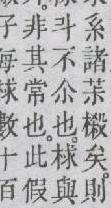 系諸莍樧矣則
斗不尒也梂與
非其常也此假
子每梂數十百